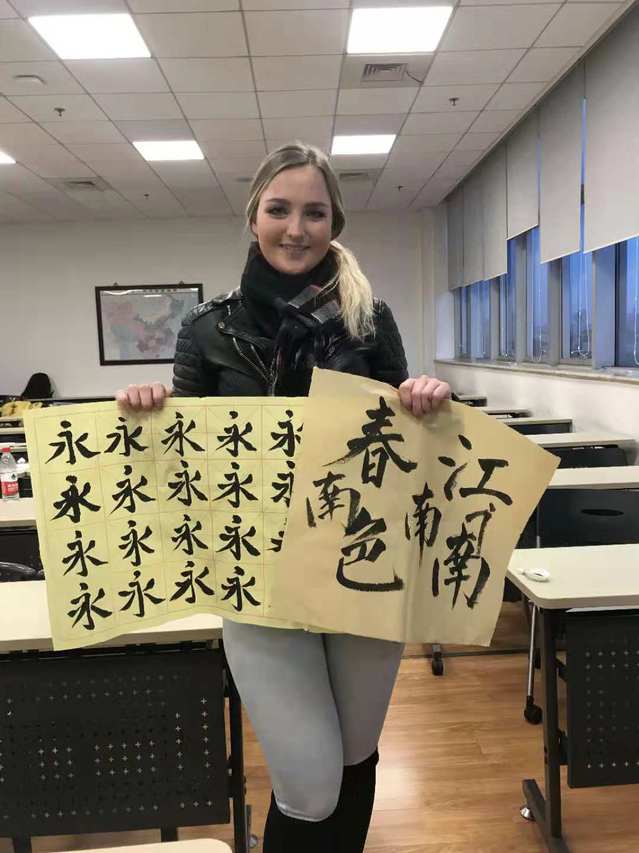 永永永永永
永永永永永
永永永永
永永永永
江南
南
春色
南